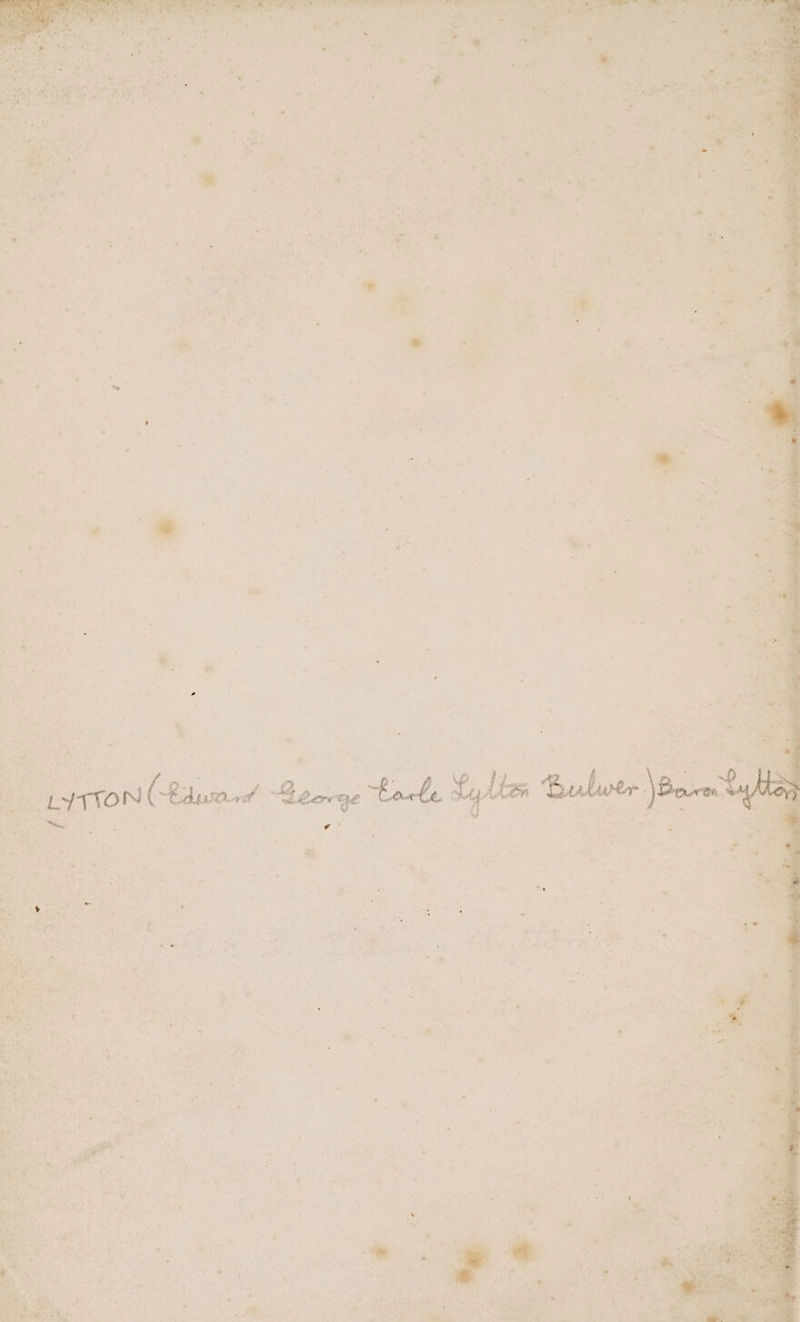 LYTTON (Edward George Earle Lytton Bulwer) Baron Lytton